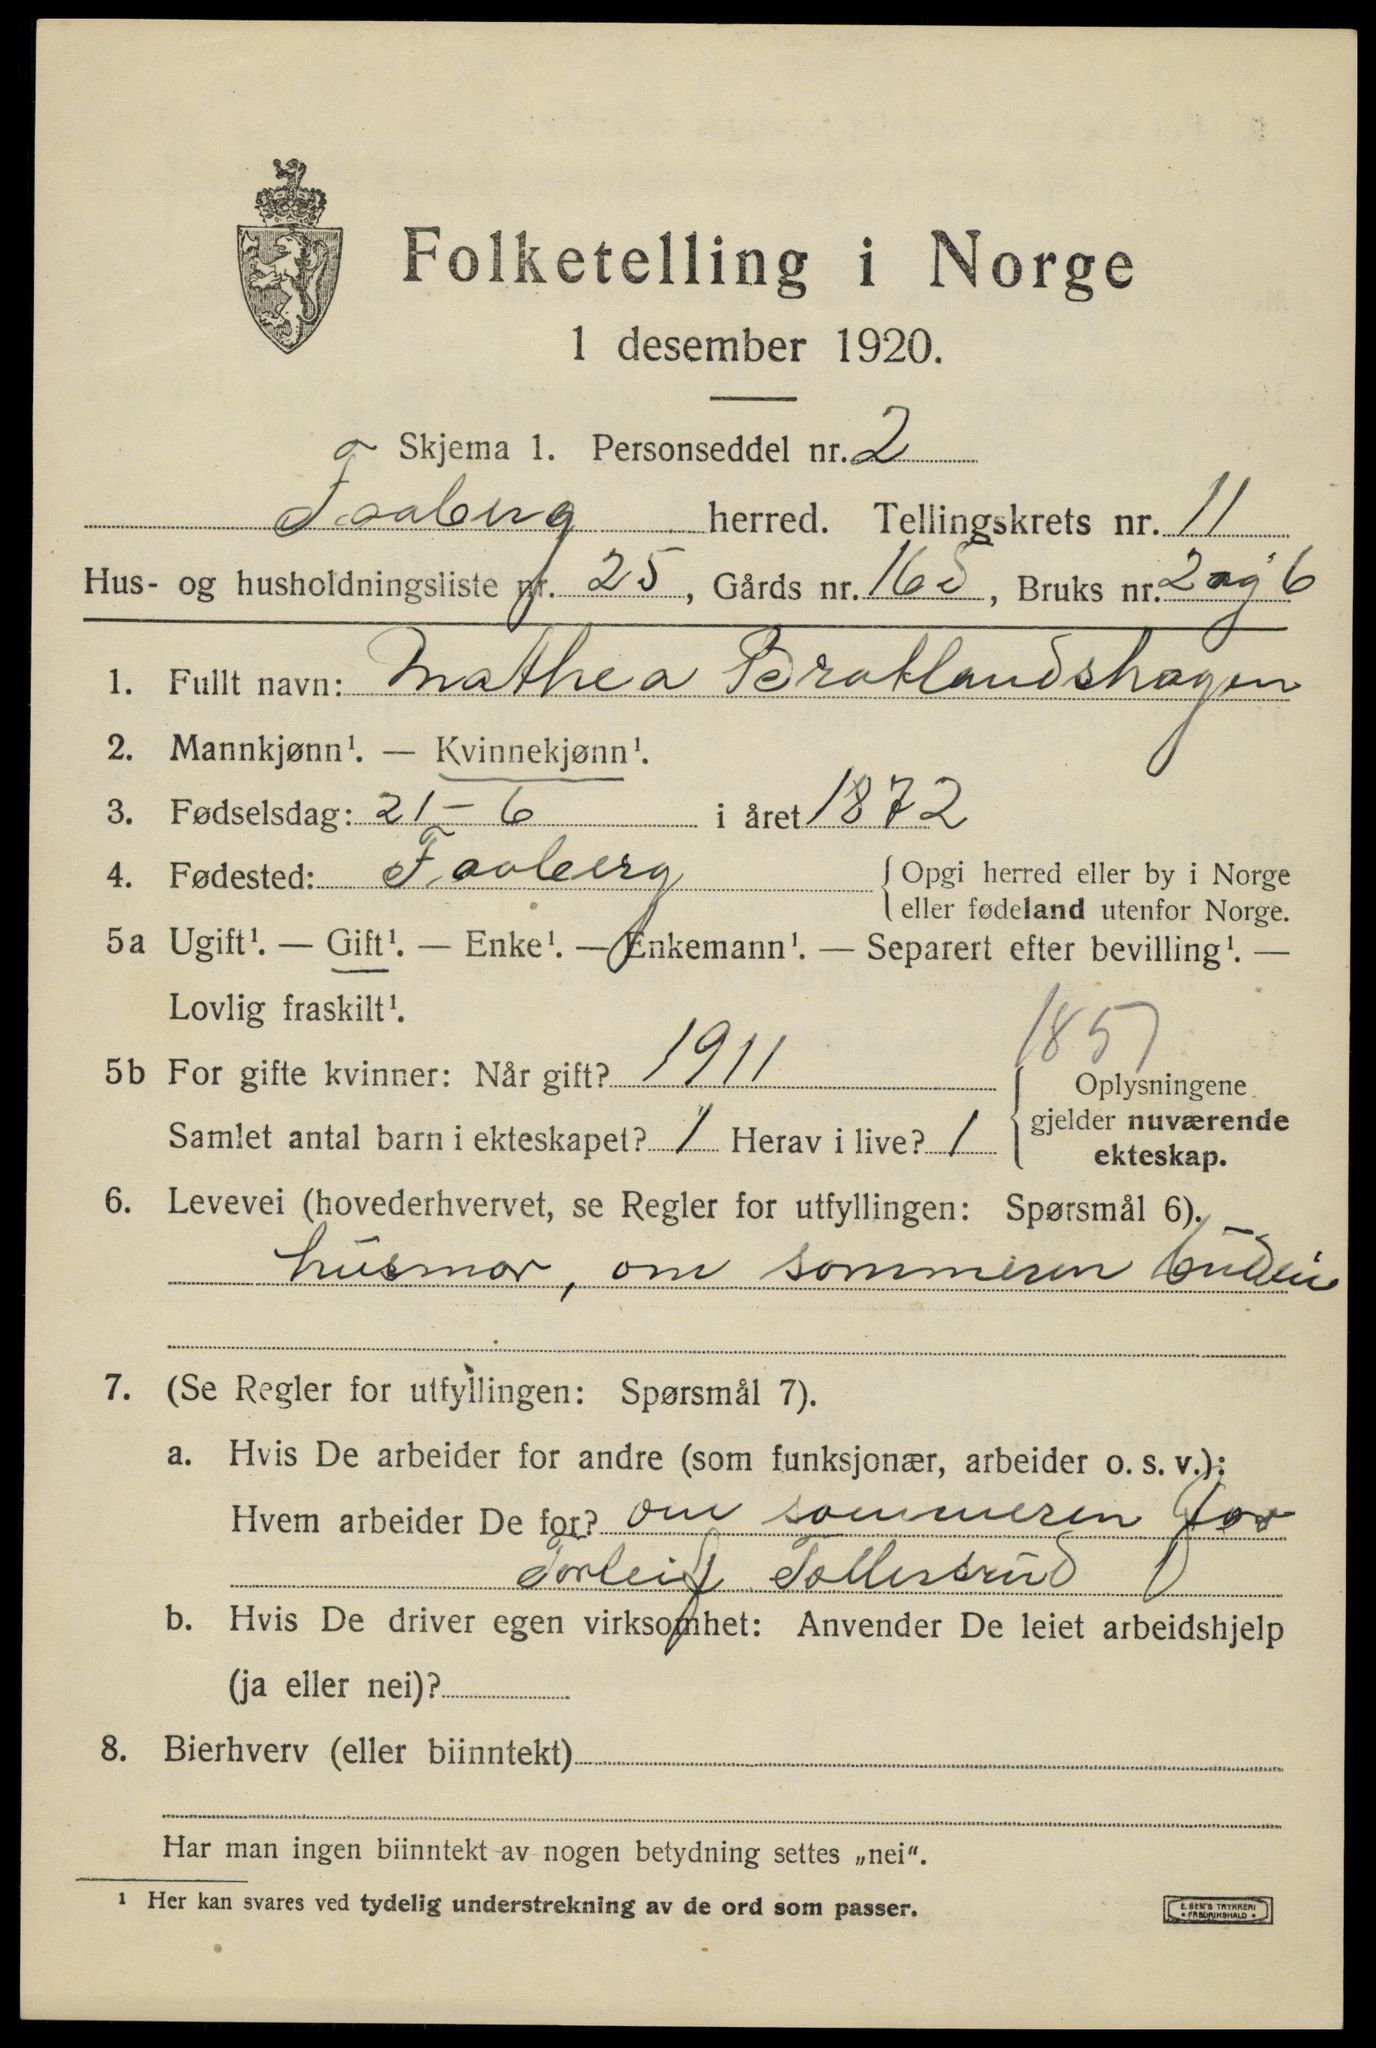 Folketelling i Norge
1 desember 1920.
Skjema 1. Personseddel nr. 2
Faaberg herred. Tellingskrets nr. 11
Hus- og husholdningsliste nr. 25, Gårds nr. 165, Bruks nr. 2 og 6
1. Fullt navn: Mathea Brotlandshagen
2. Mannkjønn¹. — Kvinnekjønn¹.
3. Fødselsdag: 21-6 i året 1872
4. Fødested: Faaberg {Opgi herred eller by i Norge
eller fødeland utenfor Norge.
5a Ugift¹. — Gift¹. — Enke¹. — Enkemann¹. — Separert efter bevilling¹. —
Lovlig fraskilt¹.
1857
5b For gifte kvinner: Når gift? 1911 {Oplysningene
gjelder nuværende
ekteskap.
Samlet antal barn i ekteskapet? 1 Herav i live? 1
6. Levevei (hovederhvervet, se Regler for utfyllingen: Spørsmål 6).
husmor, om sommeren budeie
7. (Se Regler for utfyllingen: Spørsmål 7).
a. Hvis De arbeider for andre (som funksjonær, arbeider o. s. v.):
Hvem arbeider De for? om sommeren for
Torleif Tollersrud
b. Hvis De driver egen virksomhet: Anvender De leiet arbeidshjelp
(ja eller nei)?
8. Bierhverv (eller biinntekt)
Har man ingen biinntekt av nogen betydning settes „nei“.
¹ Her kan svares ved tydelig understrekning av de ord som passer.
E. SEM'S TRYKKERI
• FREDRIKSHALD •